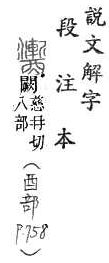 說文解字
段注本
闕。慈冄切
八部
(酉部 P.758)